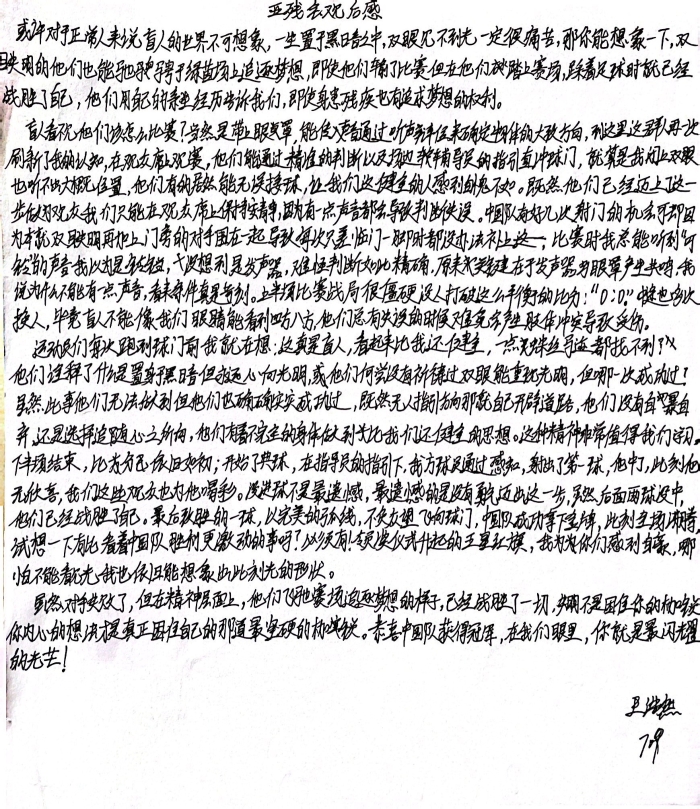 亚残会观后感
或许对于正常人来说盲人的世界不可想象,一生置于黑暗之中,双眼见不到光一定很痛苦,那你能想象一下,双
目失明的他们也能驰骋于绿茵场上追逐梦想,即使他们输了比赛但在他们踏上赛场,踩着足球时就已经
战胜了自己,他们用自己的亲身经历告诉我们,即使身患残疾也有追求梦想的权利。
盲人看不见他们该怎么比赛?当然是带上眼罩,能使人声通过听声辨位来确定物体的大致方向,到这里这群人再一次
刷新了我的认知,在观众席上观赛,他们能通过精准的判断以及场边教练辅导员的指引直冲球门,就算是我闭上双眼
也听不出大概位置,他们有的居然能无误接球,让我们这些健全的人感到自愧不如。既然他们已经迈上了这一
步做为观众我们只能在观众席上保持安静,因为有一点声音都会导致判断失误。中国队有好几次射门的机会可却因
为本就双目失明再加上门旁的对手围在一起导致每次只差临门一脚时都没办法补上这一,比赛时我总能听到“叮
铃”的声音我以为是铃铛,也没想到是发声器,难怪判断如此精确,原来关键在于发声器与眼罩产生共鸣,我
说为什么不能有一点声音,看来条件真是苛刻。上半场比赛战局很僵硬没人打破这么平衡的比分:“0:0。”期也多次
换人,毕竟盲人不能像我们眼睛能看到四方八方,他们总有失误的时候难免会产生肢体冲突导致受伤。
运动员们每次跑到球门前我就在想:这真是盲人,看起来比我还健全,一点光
他们诠释了什么是置身于黑暗但永远心向光明,或他们何尝没有祈祷过双眼能重见光明,但哪一次成功过?
虽然此事他们无法做到但他们也确确实实成功过,既然无人指引方向那就自己开辟道路,他们没有自暴自
弃,还是选择追随心之所向,他们有着不完全的身体做到却比我们还健全的思想。这种精神非常值得我们学习。
下半场结束,比分为0:0依旧如初;开始了点球,在指导员的指引下,我方球员通过感知,射出了第一球,他中了,此刻他
无比喜,我们这些观众也为他喝彩。没进球不是最遗憾,最遗憾的是没有勇气迈出这一步,虽然后面两球没中,
他们已经战胜了自己。最后致胜的一球,以完美的弧线,不失众望飞向球门,中国队成功拿下金牌,此刻全场沸腾,
试想一下有比看着中国队胜利更激动的事吗?必须有!领奖仪式升起的五星红旗,我为为你们感到自豪,哪
怕不能看见光我也依旧能想象出此刻光的形状。
虽然对手失败了,但在精神层面上,他们飞驰赛场追逐梦想的样子,已经战胜了一切,失明不是困住你的枷锁
你内心的想法才是真正困住自己的那道最坚硬的枷锁。恭喜中国队获得冠军,在我们眼里,你就是最闪耀
的光芒!
709